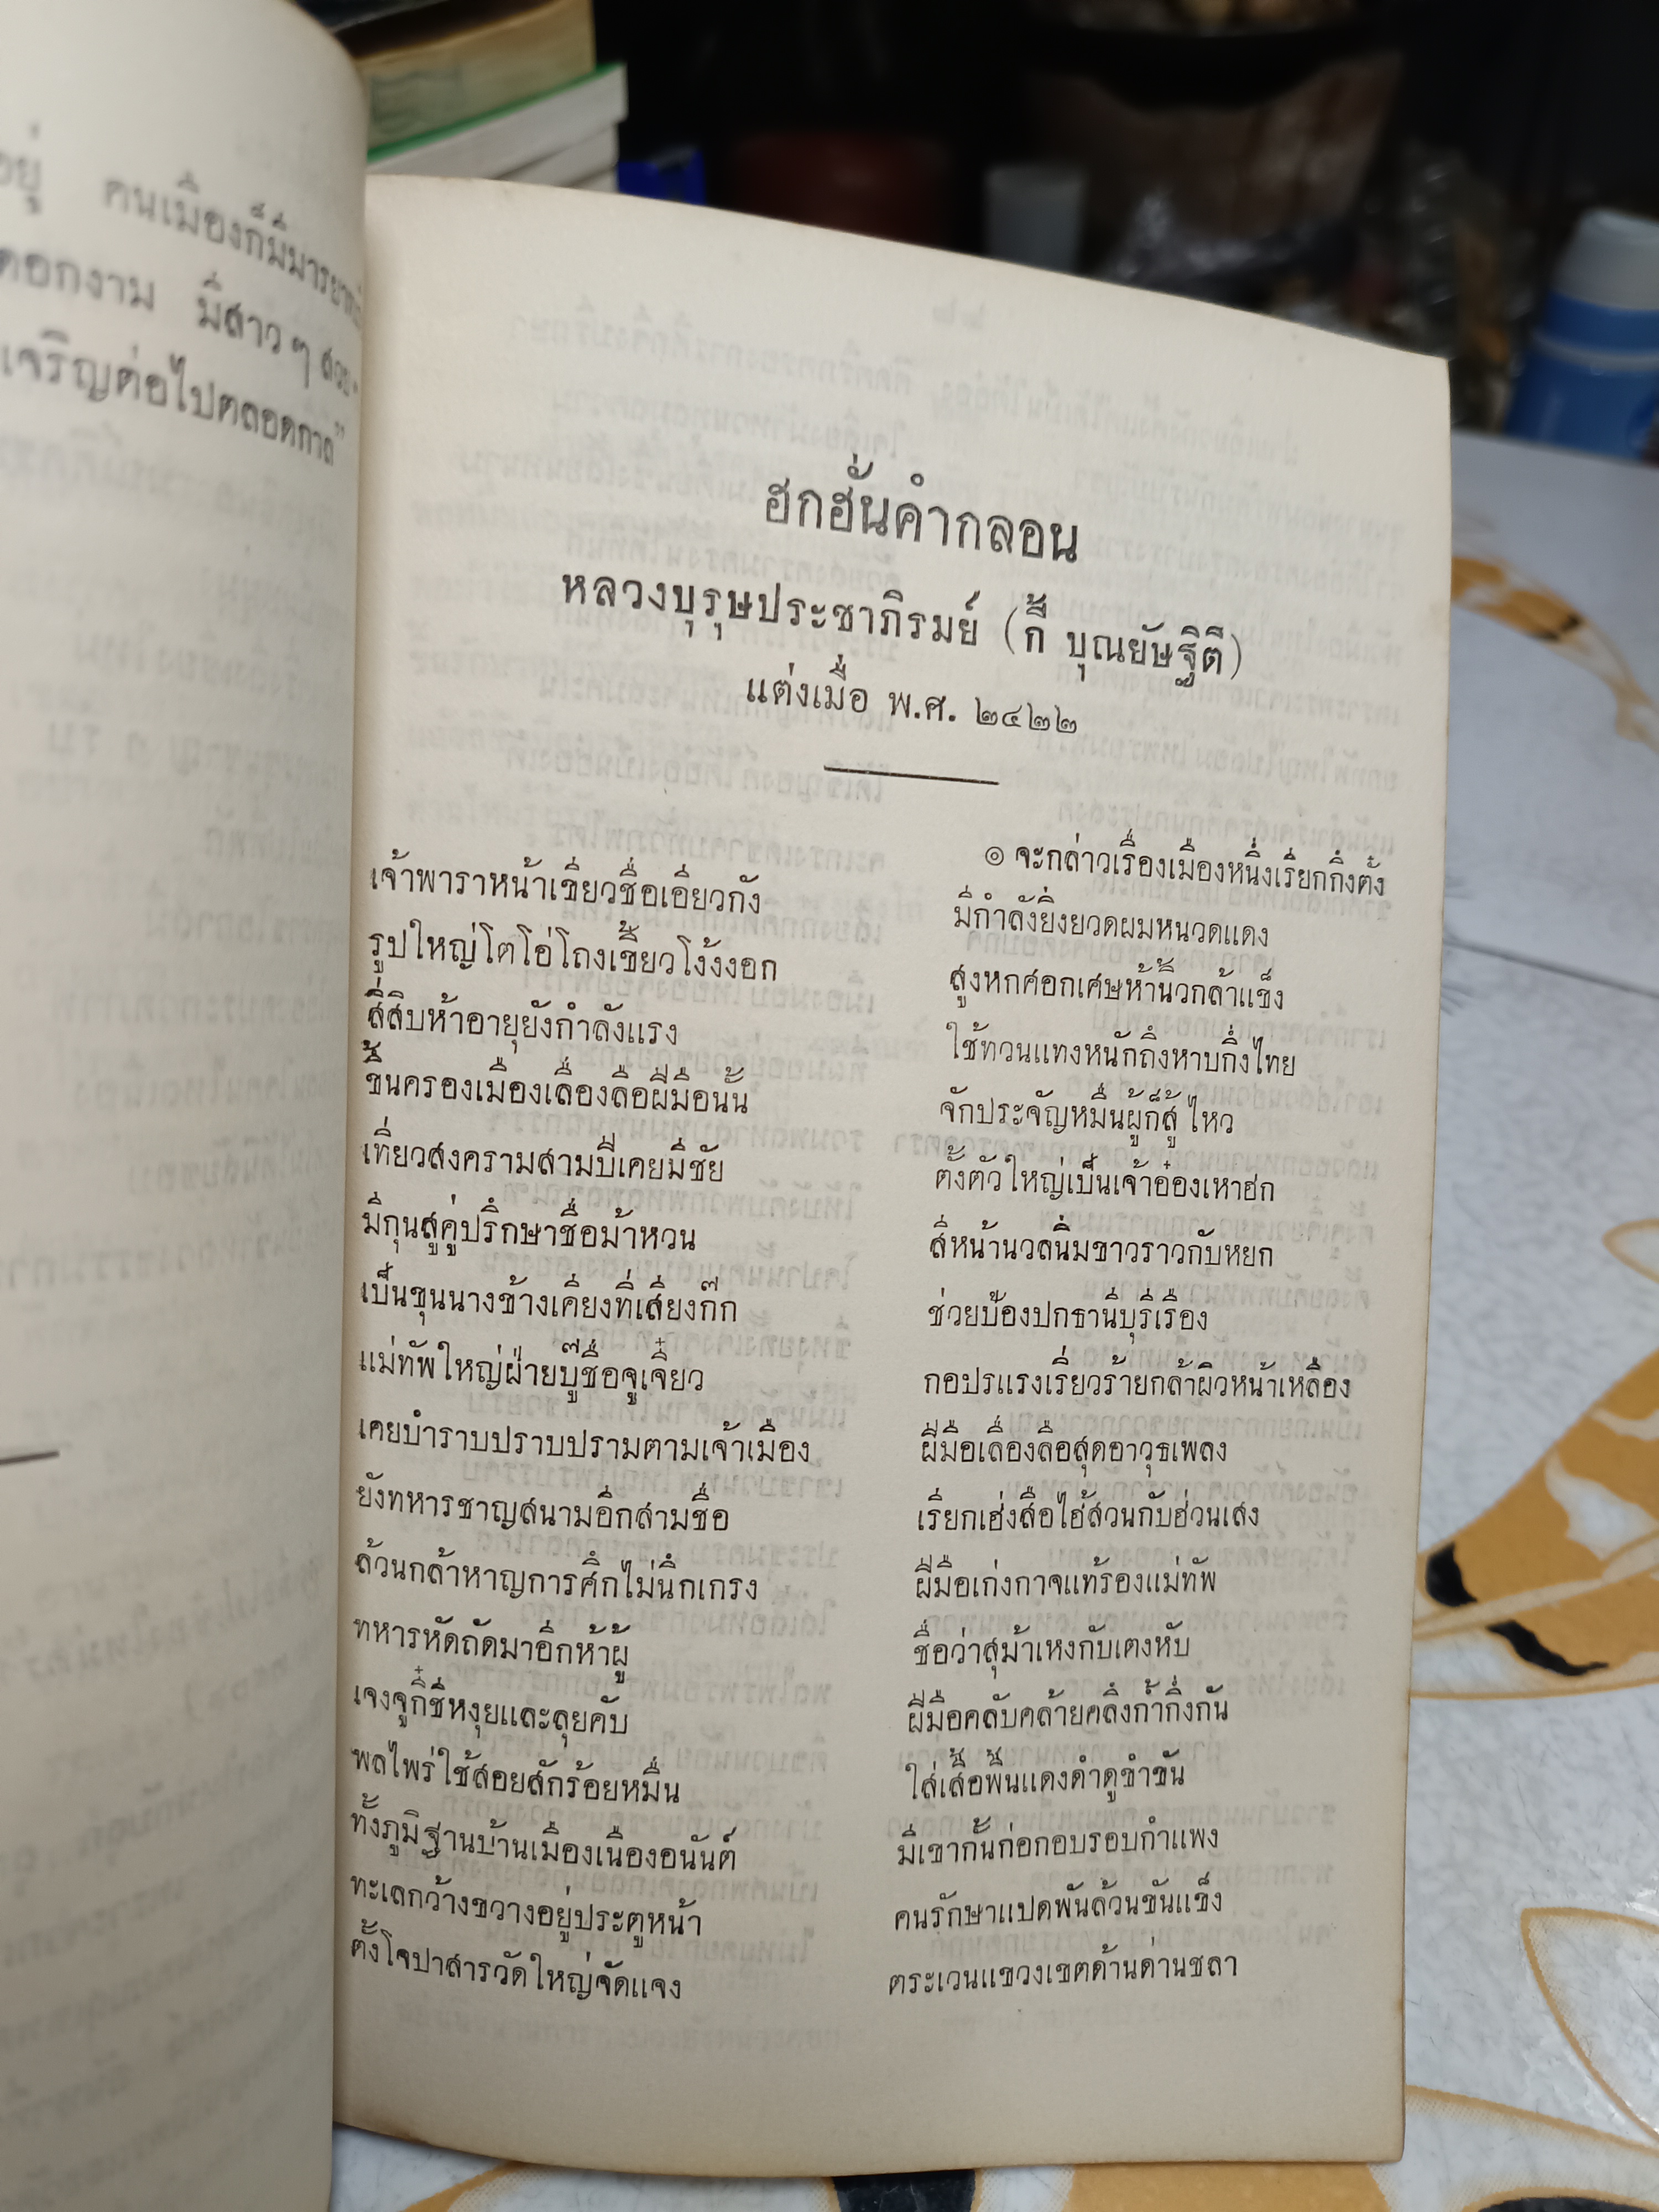 อยู่ คนเมืองก็มีมารยาท
ดอกงาม มีสาวๆ สวย
เจริญต่อไปตลอดกาล"
ฮกฮั่นคำกลอน
หลวงบุรุษประชาภิรมย์ (กี้ บุณยัษฐิติ)
แต่งเมื่อ พ.ศ. ๒๔๒๒
๏ จะกล่าวเรื่องเมืองหนึ่งเรียกกิ๋งตั๋ง
เจ้าพาราหน้าเขียวชื่อเอียวกัง มีกำลังยิ่งยวดผมหนวดแดง
รูปใหญ่โตโอ่โถงเขี้ยวโง้งงอก สูงหกศอกเศษห้านิ้วกล้าแข็ง
สี่สิบห้าอายุยังกำลังแรง ใช้ทวนแทงหนักถึงหาบกึ่งไทย
ขึ้นครองเมืองเลื่องลือฝีมือนั้น จักประจัญหมื่นผู้ก็สู้ไหว
เที่ยวสงครามสามปีเคยมีชัย ตั้งตัวใหญ่เป็นเจ้าอ๋องเหาฮก
มีกุนสูคู่ปรึกษาชื่อม้าหวน สีหน้านวลนิ่มขาวราวกับหยก
เป็นขุนนางข้างเคียงที่เสี่ยงก๊ก ช่วยป้องปกธานีบุรีเรือง
แม่ทัพใหญ่ฝ่ายบู๊ชื่อจูเจี๋ยว กอปรแรงเรี่ยวร้ายกล้าผิวหน้าเหลือง
เคยบำราบปราบปรามตามเจ้าเมือง ฝีมือเลื่องลือสุดอาวุธเพลง
ยังทหารชาญสนามอีกสามชื่อ เรียกเฮ่งสือไฮ้สวนกับฮ่วนเสง
ล้วนกล้าหาญการศึกไม่นึกเกรง ฝีมือเก่งกาจแท้รองแม่ทัพ
ทหารหัดถัดมาอีกห้าผู้ ชื่อว่าสุม้าเหงกับเตงหับ
เจงจูกี๋ชีหงุยและลุยคับ ฝีมือคลับคล้ายคลึงก้ำกึ่งกัน
พลไพร่ใช้สอยสักร้อยหมื่น ใส่เสื้อพื้นแดงดำดูขำขัน
ทั้งภูมิฐานบ้านเมืองเนืองอนันต์ มีเขากั้นก่อกอบรอบกำแพง
ทะเลกว้างขวางอยู่ประตูหน้า คนรักษาแปดพันล้วนขันแข็ง
ตั้งโจปาสารวัดใหญ่จัดแจง ตระเวนแขวงเขตด้านด่านชลา